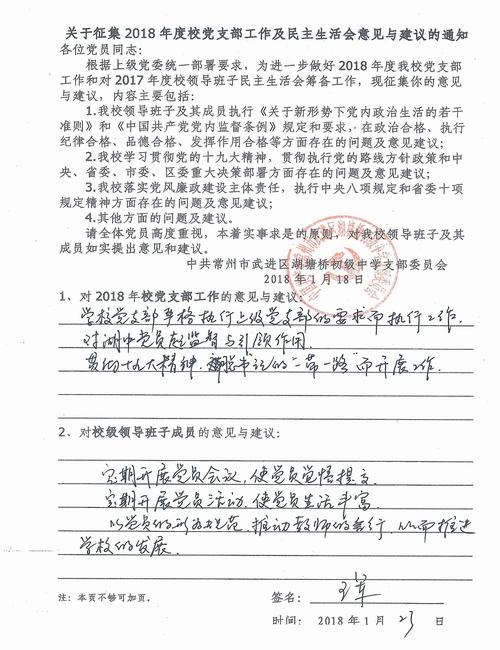 关于征集 2018 年度校党支部工作及民主生活会意见与建议的通知
各位党员同志:
根据上级党委统一部署要求，为进一步做好 2018 年度我校党支部
工作和对 2017 年度校领导班子民主生活会筹备工作，现征集你的意见
与建议，内容主要包括:
1.我校领导班子及其成员执行《关于新形势下党内政治生活的若干
准则》和《中国共产党党内监督条例》规定和要求，在政治合格、执行
纪律合格、品德合格、发挥作用合格等方面存在的问题及意见建议;
2.我校学习贯彻党的十九大精神，贯彻执行党的路线方针政策和中
央、省委、市委、区委重大决策部署方面存在的问题及意见建议;
3.我校落实党风廉政建设主体责任，执行中央八项规定和省委十项
规定精神方面存在的问题及意见建议;
4.其他方面的问题及建议。
请全体党员高度重视，本着实事求是的原则，对我校领导班子及其
成员如实提出意见和建议。
中共常州市武进区湖塘桥初级中学支部委员会
2018 年 1 月 18 日
1、对 2018 年校党支部工作的意见与建议:
学校党支部严格执行上级党支部的要求而执行工作.
对湖中党员起监督与引领作用.
贯彻十九大精神. 书记的"一带一路"而开展工作.
2、对校级领导班子成员的意见与建议:
定期开展党员会议，使党员觉悟提高.
定期开展党员活动，使党员生活丰富.
以党员的 范，推动教师的 行，从而推进
学校的发展.
注：本页不够可加页。
签名：
时间： 2018 年 1 月 23 日